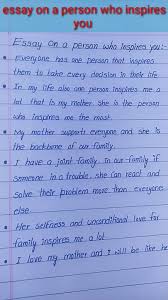 essay on a person who inspires
you
Essay on a person who inspires you:-
• Everyone has one person that inspires
them to take every decision in their life
• In my life also one inspires me a
lot that is my mother. She is the person
who inspires me the most.
• My mother supports everyone and she is
the backbone of our family.
• I have a joint family. In our family if
someone in a trouble, she can react and
solve their problem more than everyone
else.
• Her selfness and unconditional love for
family inspires me a lot
• I love my mother and I will be like her